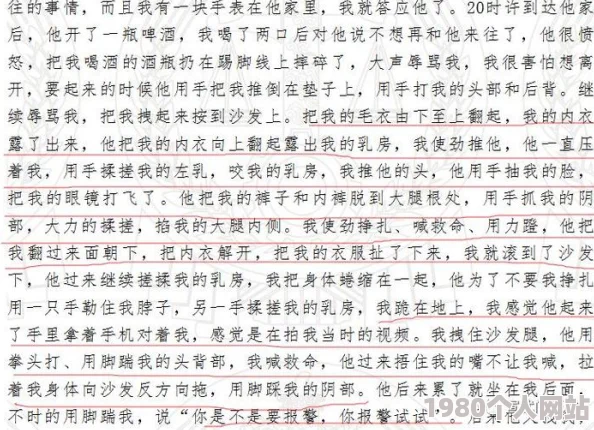 往的事情，而且我有一块手表在他家里，我就答应他了。20时许到达他家
后，他开了一瓶啤酒，我喝了两口后对他说不想再和他来往了，他很愤
怒，把我喝酒的酒瓶扔在踢脚线上摔碎了，大声辱骂我，我很害怕想离
开，要起来的时候他用手把我推倒在垫子上，用手打我的头部和后背。继
续辱骂我，把我拽起来按到沙发上。把我的毛衣由下至上翻起，我的内衣
露了出来，他把我的内衣向上翻起露出我的乳房，我使劲推他，他一直压
着我，用手揉搓我的左乳，咬我的乳房，我推他的头，他用手抽我的脸，
把我的眼镜打飞了。他把我的裤子和内裤脱到大腿根处，用手抓我的阴
部，大力的揉搓，掐我的大腿内侧。我使劲挣扎、喊救命、用力蹬，他把
我翻过来面朝下，把内衣解开，把我的衣服扯了下来，我就滚到了沙发
下，他过来继续搓揉我的乳房，我把身体蜷缩在一起，他为了不要我挣扎
用一只手勒住我脖子，另一手揉搓我的乳房，我跪在地上，我感觉他起来
了手里拿着手机对着我，感觉是在拍我当时的视频。我拽住沙发腿，他用
拳头打、用脚踹我的头背部，我喊救命，他过来捂住我的嘴不让我喊，拉
着我身体向沙发反方向拖，用脚踩我的阴部。他后来累了就坐在我后面，
不时的用脚踹我，说“你是不是要报警，你报警试试”。后来他
1980个人网站